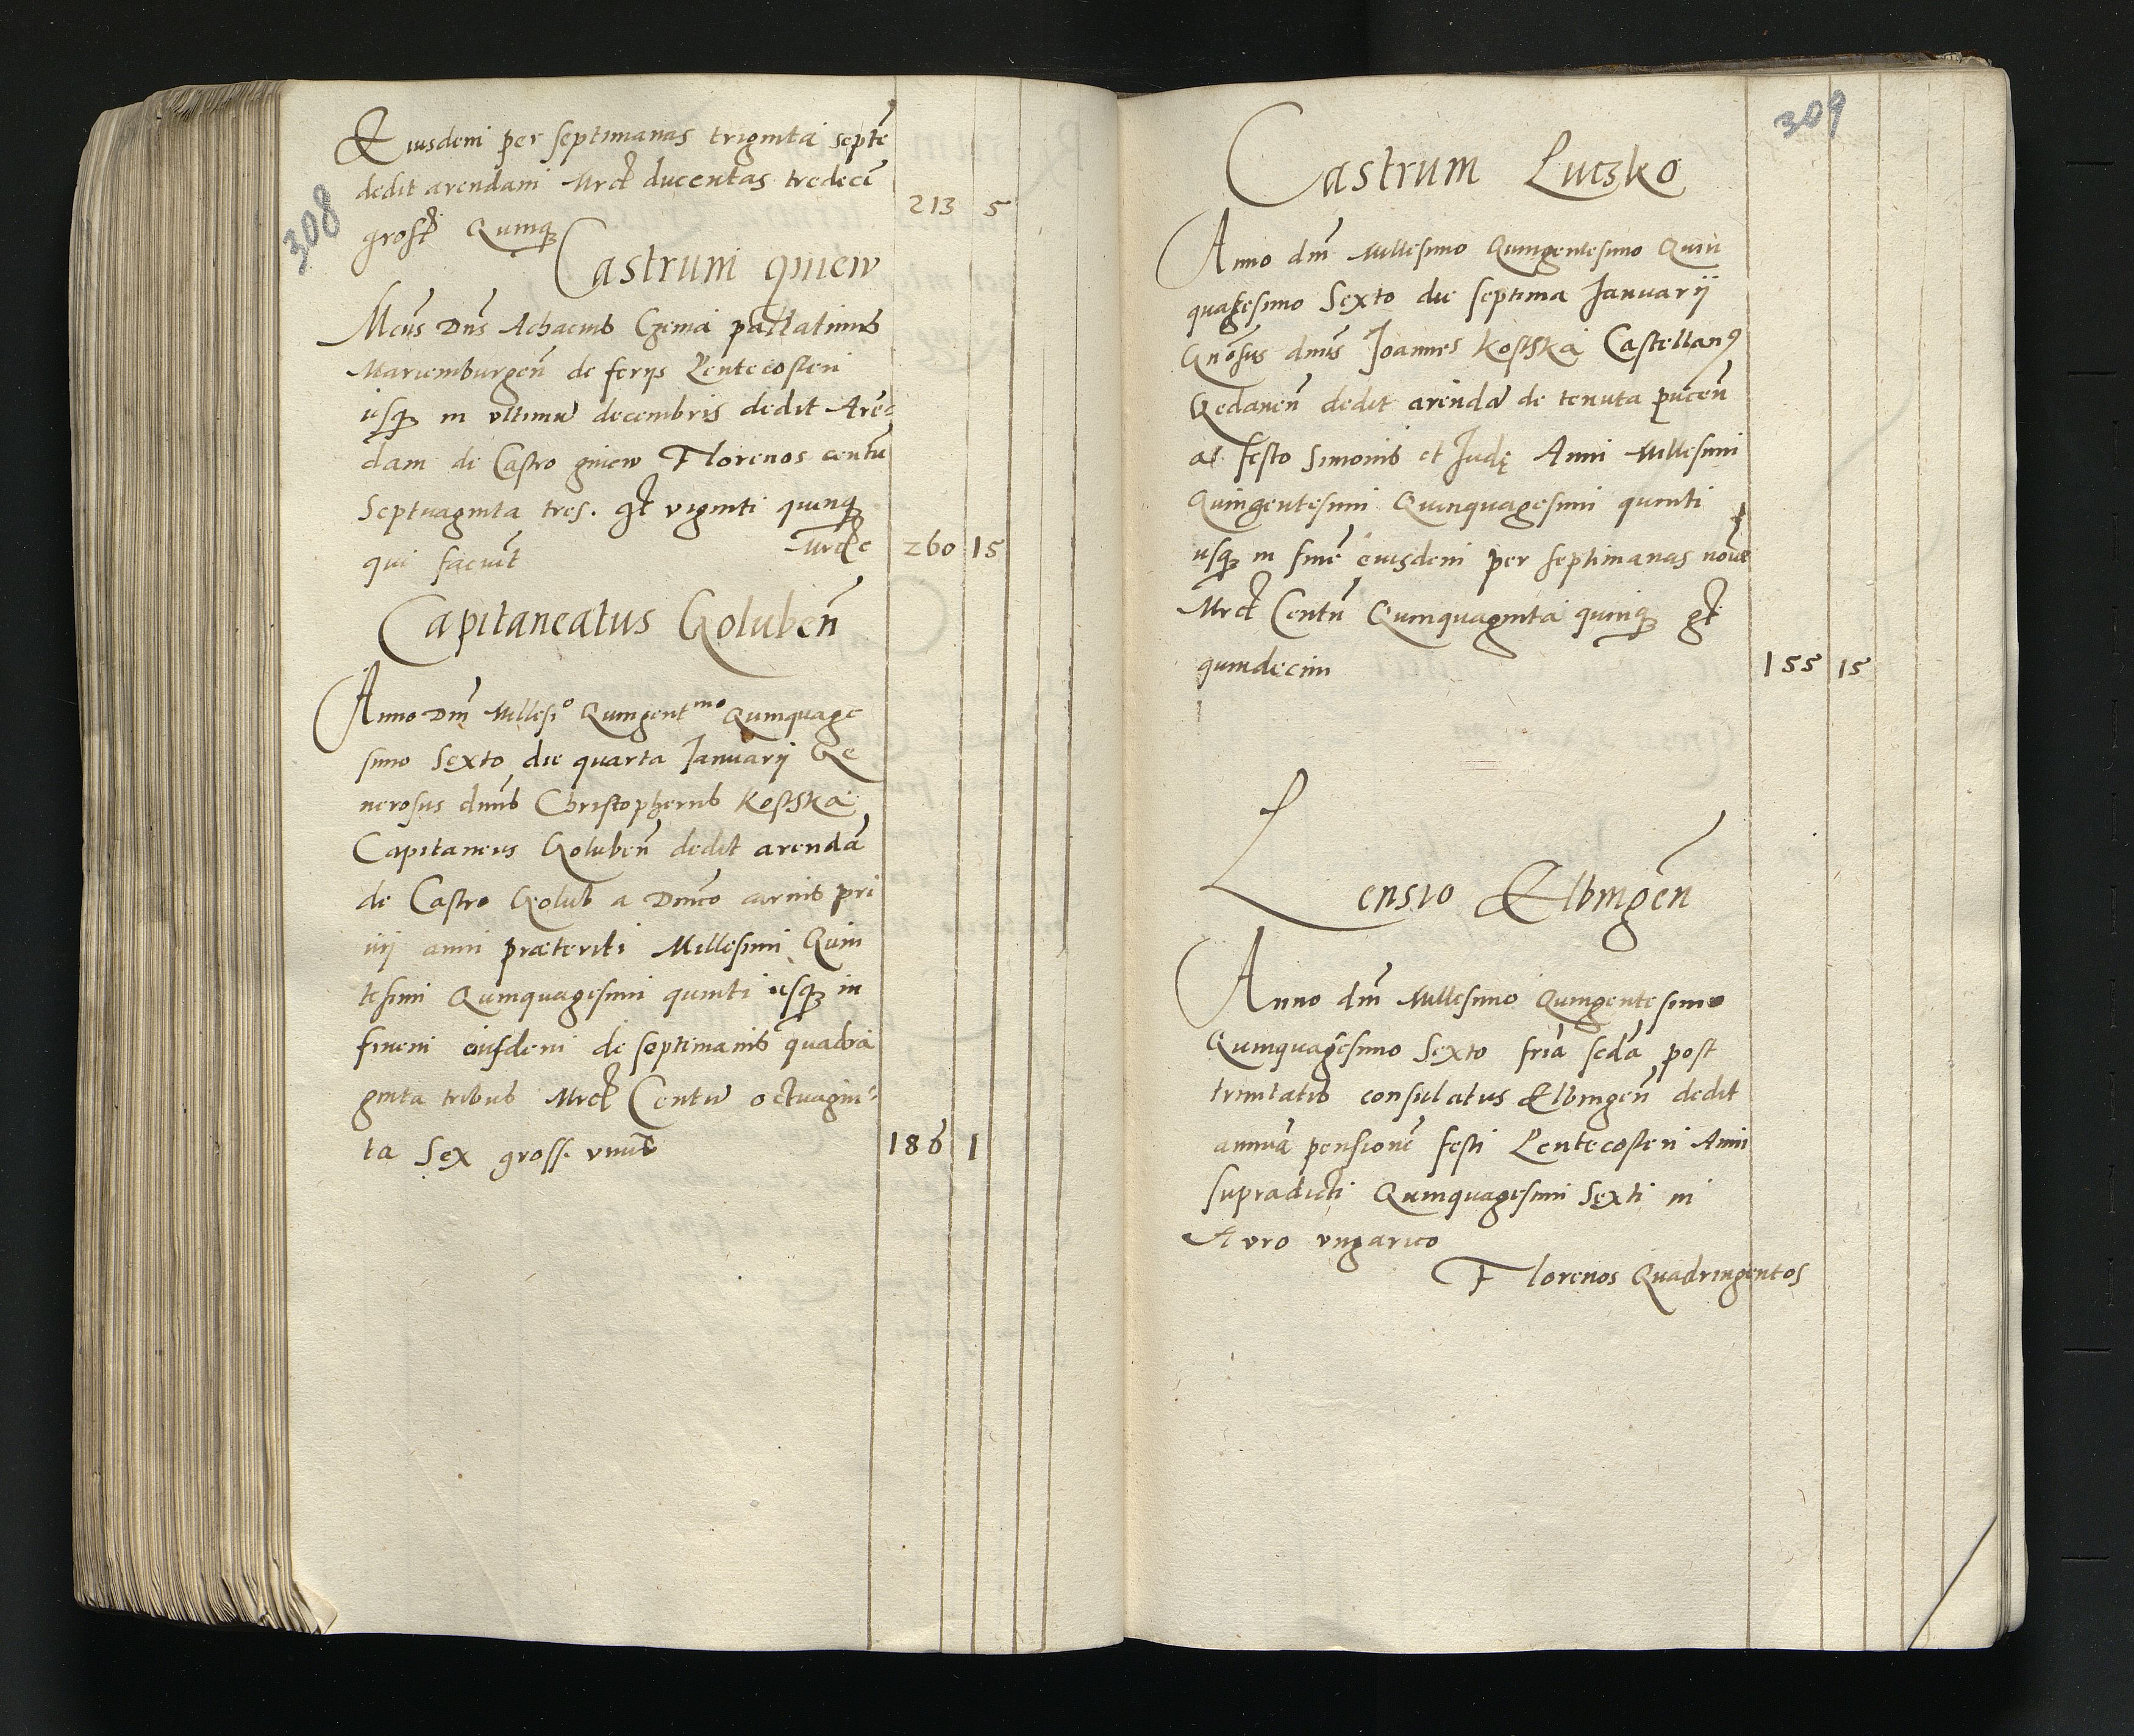 308
Eiusdem per septimanas triginta septē
dedit arendam Mrct ducentas tredecē
gross Quinq 213 5
Castrum gniew
Mcus Dns Achacius Czema pallatinus
Mariemburgen de ferijs Pentecosten
usq in ultimū decembris dedit Arē
dam de Castro gniew Florenos centū
Septuaginta tres. gt viginti quinq
qui faciūt Mrce 260 15
Capitaneatus Goluben
Anno Dm Millesio Quingentmo Quinquage
simo Sexto die quarta Januarij Ge
nerosus dnus Christopherus Kostka
Capitaneus Goluben dedit arendā
de Castro Golub a Dnico carnis pri
vij anni præteriti Millesimi Quin
tesimi Quinquagesimi quinti usq in
finem eiusdem de septimanis quadra
ginta tribus Mrct Centū octuagin
ta Sex gross. unū 186 1
309
Castrum Luczko
Anno dm Millesimo Quingentesimo Quin
quagesimo Sexto die septima Januarij
Gnosus dnus Joannes Kostka Castellanꝰ
Gedanen dedit arendā de tenuta pucen
a festo Simonis et Judę Anni Millesimi
Quingentesimi Quinquagesimi quinti
usq in finē eiusdem per septimanas novē
Mrct Centū Quinquaginta quinq gt
quindecim 155 15
Pensio Elbingen
Anno dm Millesimo Quingentesimo
Quinquagesimo Sexto fria scda post
trinitatis consulatus Elbingen dedit
annuā pensionē festi Pentecosten Anni
supradicti Quinquagesimi Sexti in
Auro ungarico
Florenos Quadringentos